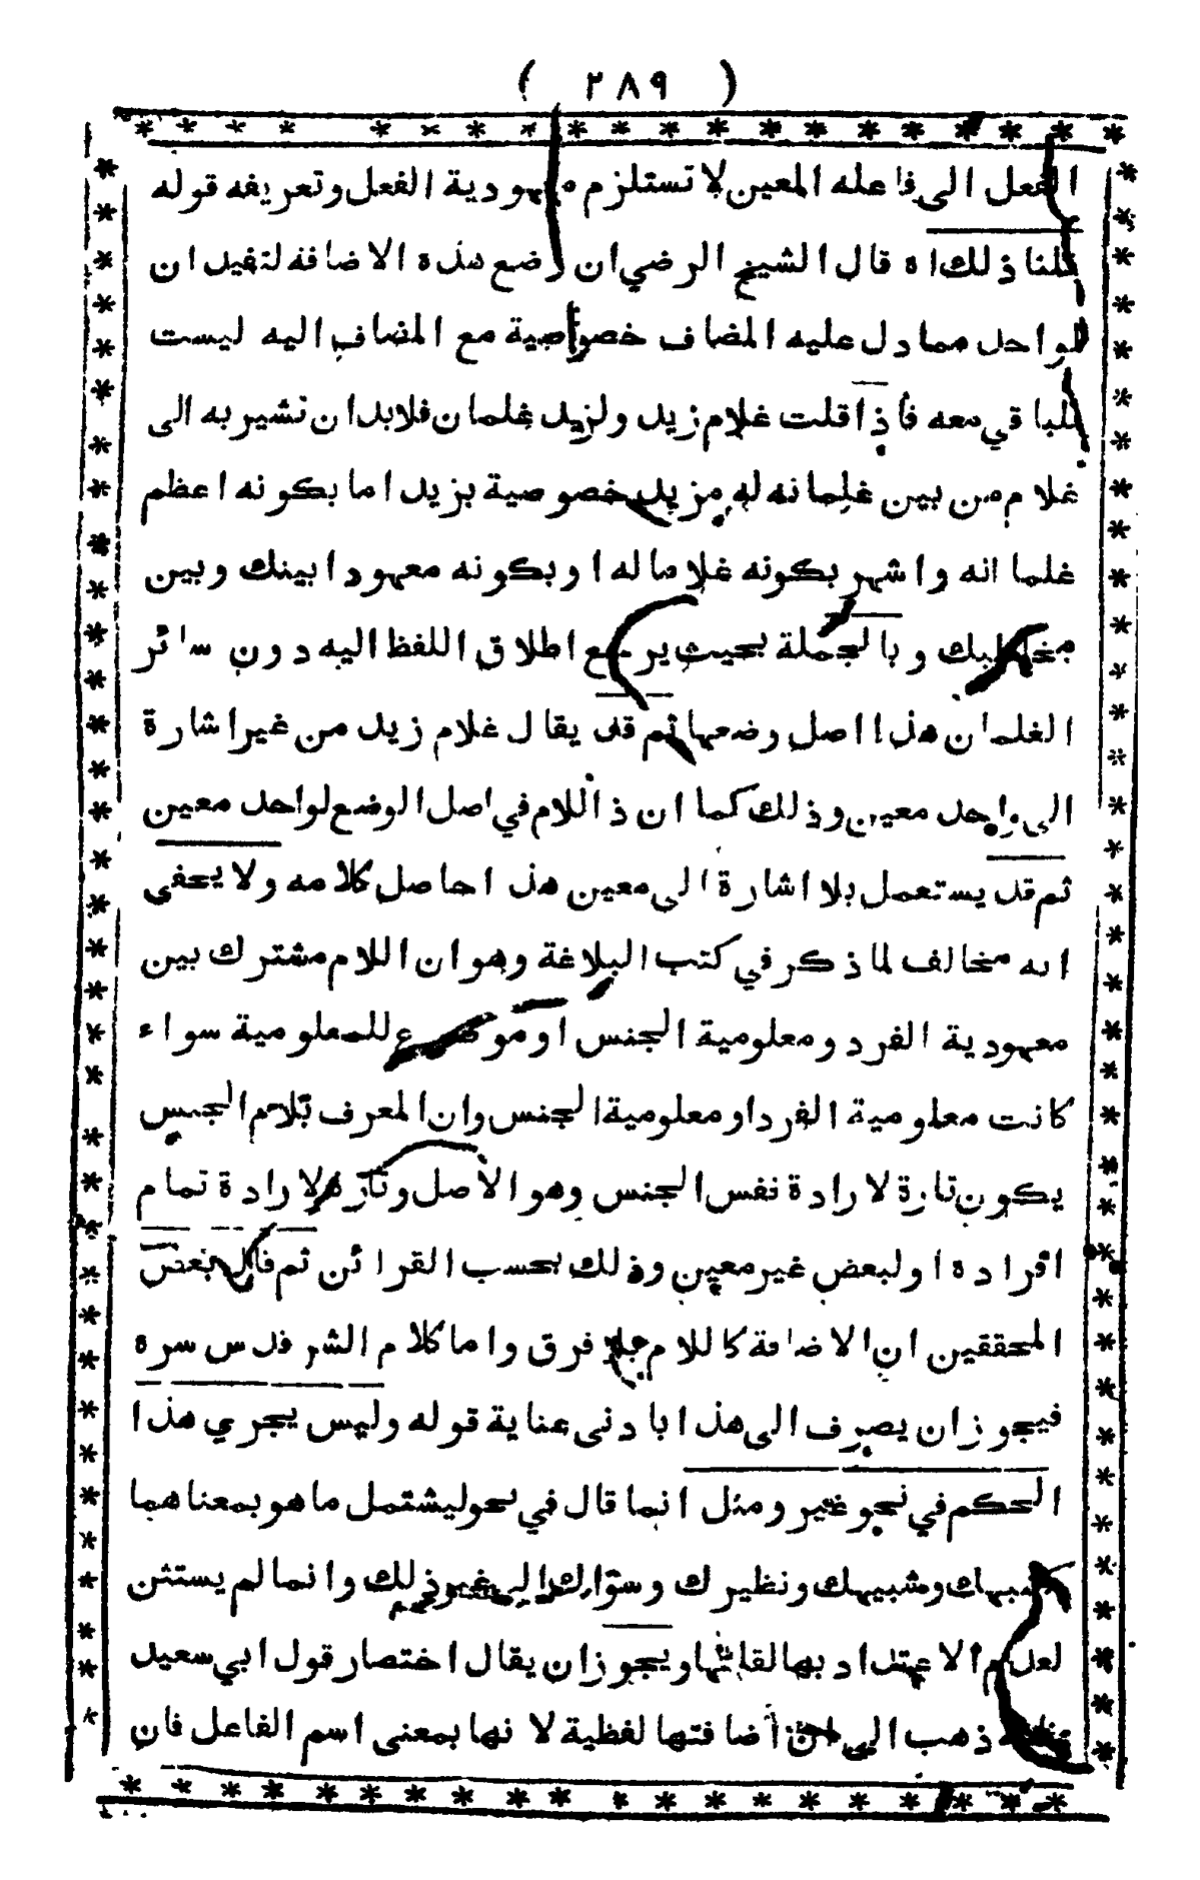 ( ٢٨٩ )
الفعل الى فاعله المعين لا تستلزم معهودية الفعل وتعريفه قوله
قلنا ذلك اه قال الشيخ الرضي ان وضع هذه الاضافة لتفيد ان
لواحد مما دل عليه المضاف خصوصية مع المضاف اليه ليست
للباقي معه فاذا قلت غلام زيد ولزيد غلمان فلابد ان تشير به الى
غلام من بين غلمانه له مزيد خصوصية بزيد اما بكونه اعظم
غلمانه واشهر بكونه غلاما له او بكونه معهودا بينك وبين
مخاطبك وبالجملة بحيث يرجع اطلاق اللفظ اليه دون سائر
الغلمان هذا اصل وضعها ثم قد يقال غلام زيد من غير اشارة
الى واحد معين وذلك كما ان ذا اللام في اصل الوضع لواحد معين
ثم قد يستعمل بلا اشارة الى معين هذا حاصل كلامه ولا يخفى
انه مخالف لما ذكر في كتب البلاغة وهو ان اللام مشترك بين
معهودية الفرد ومعلومية الجنس او موضوع للمعلومية سواء
كانت معلومية الفرد او معلومية الجنس وان المعرف بلام الجنس
يكون تارة لارادة نفس الجنس وهو الاصل وتارة لارادة تمام
افراده او لبعض غير معين وذلك بحسب القرائن ثم قال بعض
المحققين ان الاضافة كاللام بلا فرق واما كلام الشر قدس سره
فيجوز ان يصرف الى هذا بادنى عناية قوله وليس يجري هذا
الحكم في نحو غير ومثل انما قال في نحو ليشتمل ما هو بمعناهما
كشبهك وشبيهك ونظيرك وسواك الى غير ذلك وانما لم يستثن
لعدم الاعتداد بها لقلتها ويجوز ان يقال اختصار قول ابي سعيد
فانه ذهب الى ان اضافتها لفظية لا نها بمعنى اسم الفاعل فان